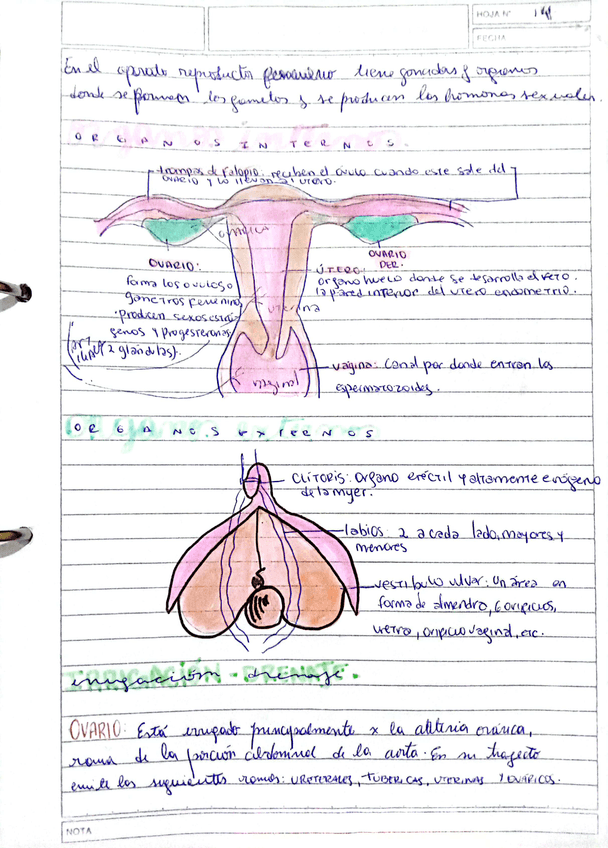 HOJA N° 14
FECHA
En el aparato reproductor femenino tiene gonadas y organos
donde se forman los gametos y se producen las hormonas sexuales.
ORGANOS INTERNOS.
trompas de falopio: reciben el óvulo cuando este sale del
OVARIO Y LO llevan al utero.
OVARICA
OVARIO:
forma los ovulos o
gametros femenino
producen sexos estró
genos y progesteronas
2 glándulas).
OVARIO
DER.
ÚTERO:
organo hueco donde se desarrolla el feto.
la pared interior del utero endometrio.
uterina
vaginal
vagina: Canal por donde entran los
espermatozoides.
ORGANOS EXTERNOS
CLÍTORIS: Organo eréctil y altamente erógeno
de la mujer.
labios: 2 a cada lado, mayores y
menores
vestíbulo vulvar: Un área en
forma de almendra, 6 orificios,
uretra, orificio vaginal, etc.
IRRIGACIÓN - DRENAJE.
irrigación drenaje.
OVARIO: Está irrigado principalmente x la arteria ovárica,
rama de la porción abdominal de la aorta. En su trayecto
emite las siguientes ramas: URETERALES, TUBÁRICAS, UTERINAS Y OVÁRICOS.
NOTA